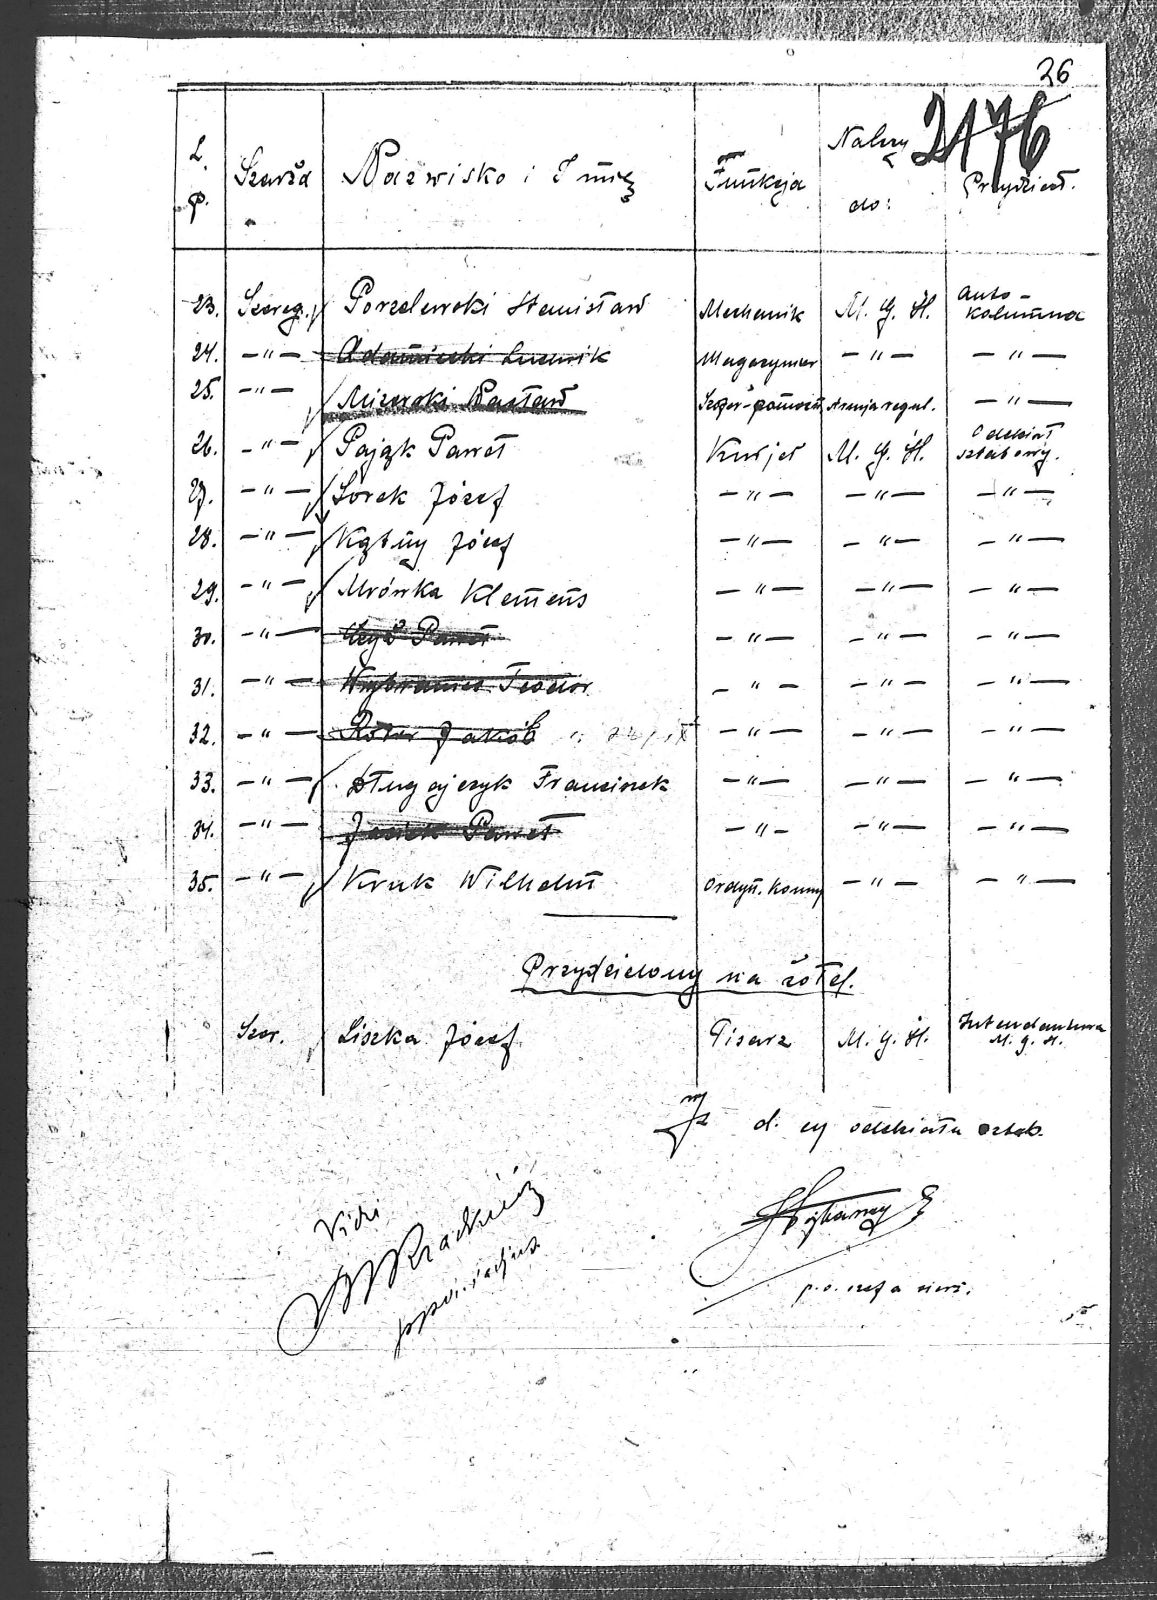 26
2176
L. p. Szarża Nazwisko i Imię Funkcja Należy do: Przydział.
23. Szereg. Porzelewski Stanisław Mechanik M. G. H. Auto-kolumna
24. —"— Adamiecki Ludwik Magazynier —"— —"—
25. —"— Mizerski Wacław Szofer-pomocn. Armja regul. —"—
26. —"— Pająk Paweł Kurjer M. G. H. Oddział sztabowy.
27. —"— Sorek Józef —"— —"— —"—
28. —"— Kątny Józef —"— —"— —"—
29. —"— Mrówka Klemens —"— —"— —"—
30. —"— Paweł —"— —"— —"—
31. —"— Wybraniec Teodor —"— —"— —"—
32. —"— Jakób —"— —"— —"—
33. —"— Długajczyk Franciszek —"— —"— —"—
34. —"— Paweł —"— —"— —"—
35. —"— Kruk Wilhelm Ordyn. konny —"— —"—
Przydzielony na żołd.
Szer. Liszka Józef Pisarz M. G. H. Intendantura M. G. H.
d. cy oddziału sztab.
Vidi
p. o. szefa